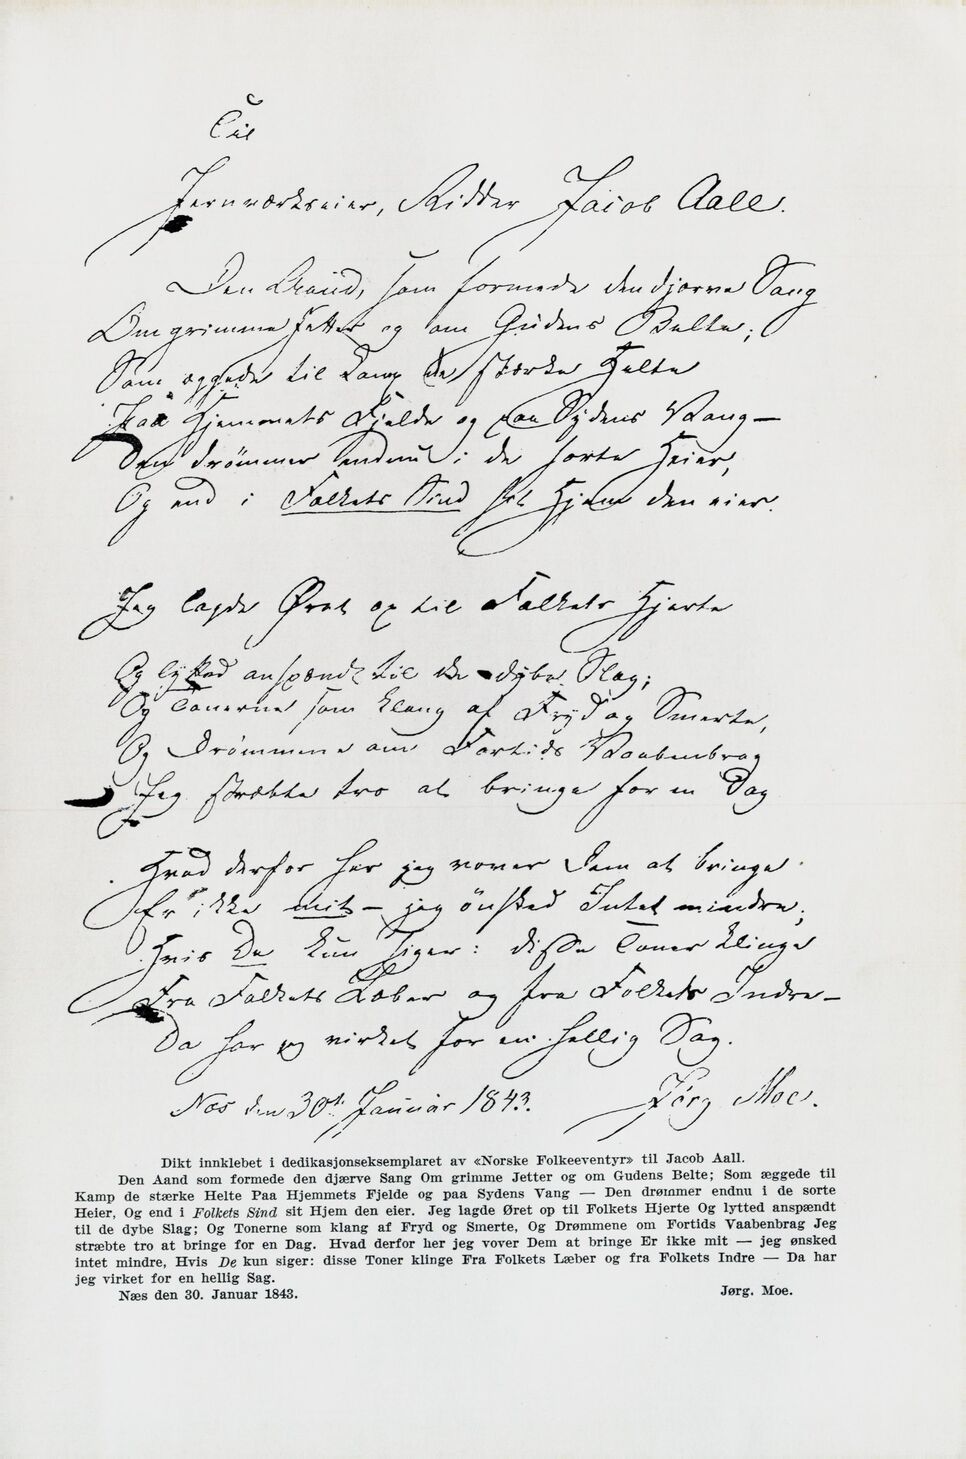 Til
Jernværkseier, Ridder Jacob Aall.
Den Aand, som formede den djærve Sang
Om grimme Jetter og om Gudens Belte;
Som æggede til Kamp de stærke Helte
Paa Hjemmets Fjelde og paa Sydens Vang —
Den drømmer endnu i de sorte Heier,
Og end i Folkets Sind sit Hjem den eier.
Jeg lagde Øret op til Folkets Hjerte
Og lytted anspændt til de dybe Slag;
Og Tonerne som klang af Fryd og Smerte,
Og Drømmene om Fortids Vaabenbrag
Jeg stræbte tro at bringe for en Dag
Hvad derfor her jeg vover Dem at bringe
Er ikke mit — jeg ønsked Intet mindre;
Hvis De kun siger: disse Toner klinge
Fra Folkets Læber og fra Folkets Indre —
Da har jeg virket for en hellig Sag.
Næs den 30te Januar 1843. Jørg Moe.
Dikt innklebet i dedikasjonseksemplaret av «Norske Folkeeventyr» til Jacob Aall.
Den Aand som formede den djærve Sang Om grimme Jetter og om Gudens Belte; Som æggede til
Kamp de stærke Helte Paa Hjemmets Fjelde og paa Sydens Vang — Den drømmer endnu i de sorte
Heier, Og end i Folkets Sind sit Hjem den eier. Jeg lagde Øret op til Folkets Hjerte Og lytted anspændt
til de dybe Slag; Og Tonerne som klang af Fryd og Smerte, Og Drømmene om Fortids Vaabenbrag Jeg
stræbte tro at bringe for en Dag. Hvad derfor her jeg vover Dem at bringe Er ikke mit — jeg ønsked
intet mindre, Hvis De kun siger: disse Toner klinge Fra Folkets Læber og fra Folkets Indre — Da har
jeg virket for en hellig Sag.
Næs den 30. Januar 1843. Jørg. Moe.